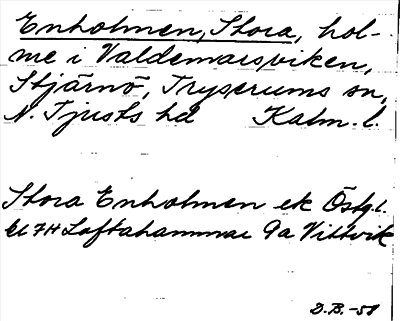 Enholmen, Stora, hol-
me i Valdemarsviken,
Stjärnö, Tryserums sn,
N. Tjusts hd Kalm. l.
Stora Enholmen ek Östg. l.
bl 7H Loftahammar 9a Vittvik
D.B. -58